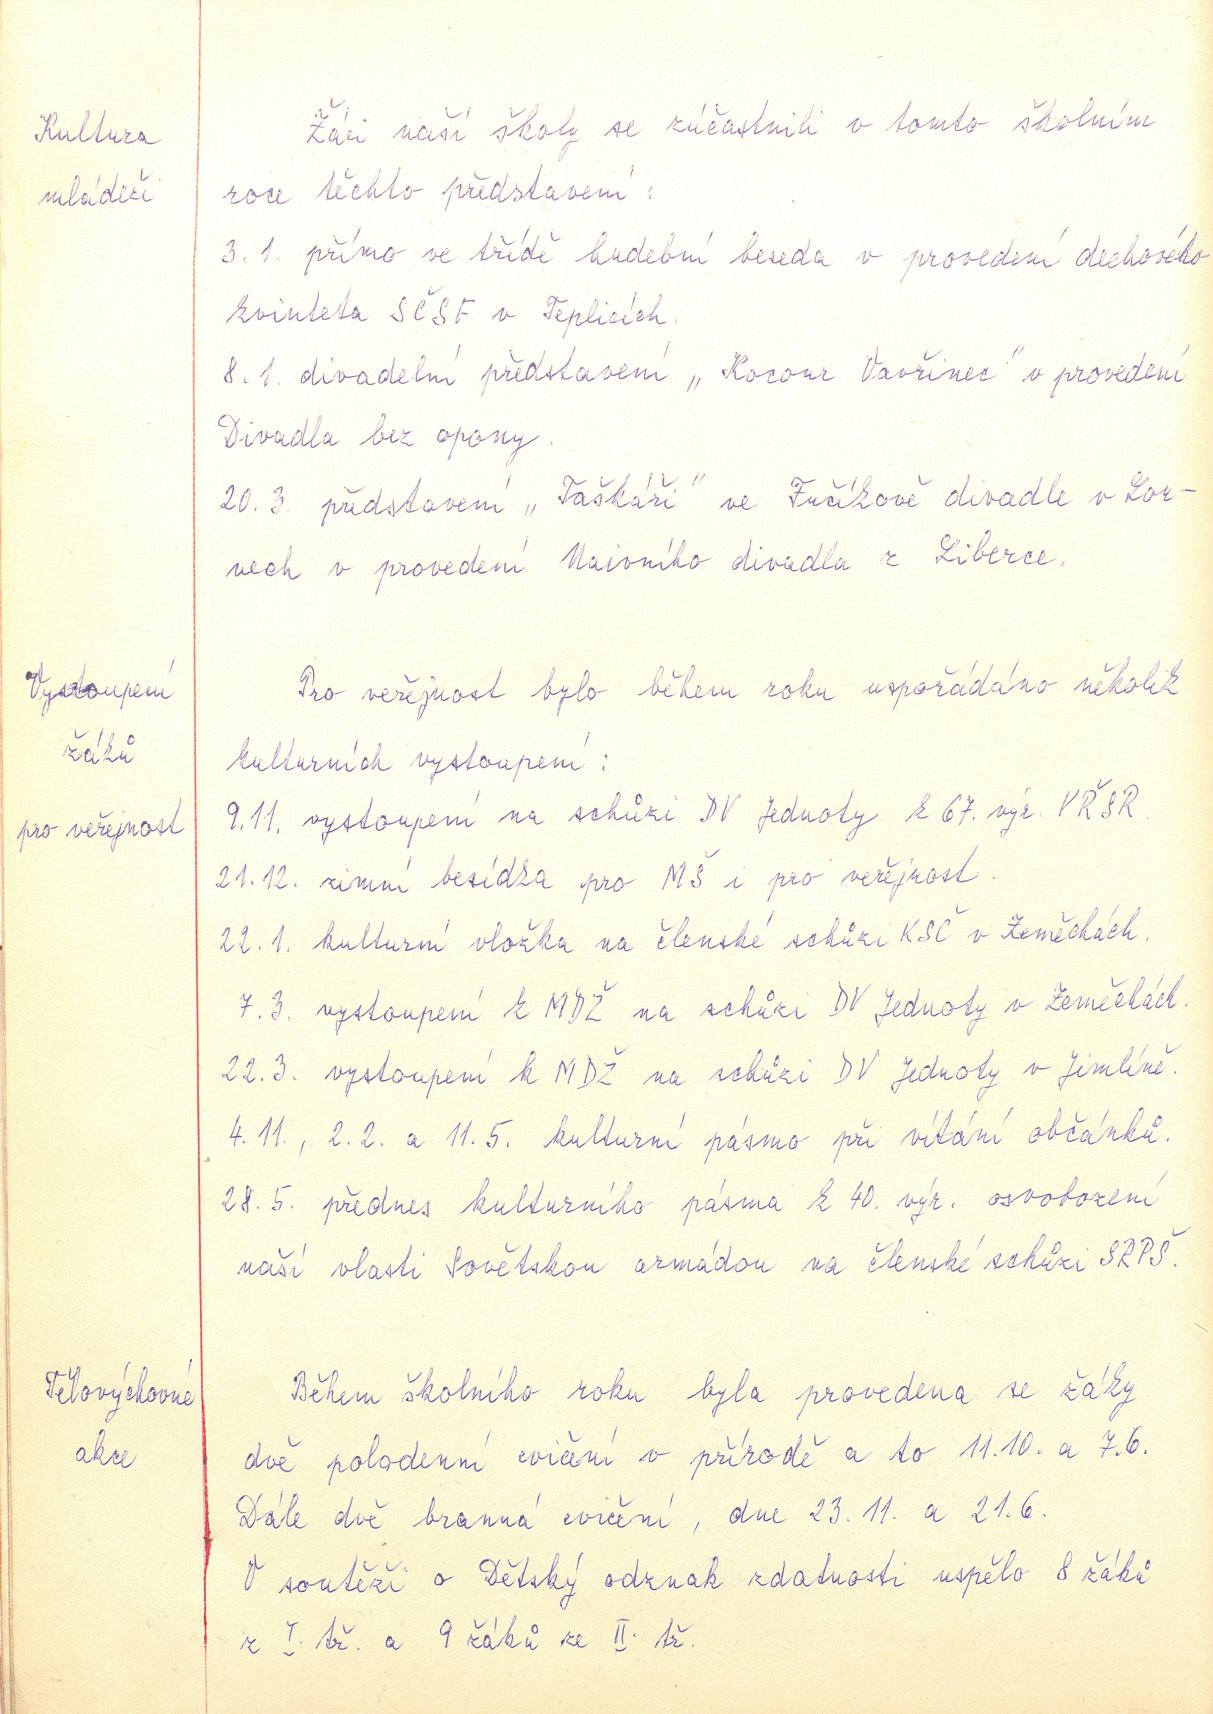 Kultura
mládeži
Žáci naší školy se zúčastnili v tomto školním
roce těchto představení:
3. 1. přímo ve třídě hudební beseda v provedení dechového
kvinteta SČSF v Teplicích.
8. 1. divadelní představení „Kocour Vavřinec" v provedení
Divadla bez opony.
20. 3. představení „Taškáři" ve Fučíkově divadle v Lou-
nech v provedení Naivního divadla z Liberce.
Vystoupení
žáků
pro veřejnost
Pro veřejnost bylo během roku uspořádáno několik
kulturních vystoupení:
9. 11. vystoupení na schůzi DV Jednoty k 67. výr. VŘSR.
21. 12. zimní besídka pro MŠ i pro veřejnost.
22. 1. kulturní vložka na členské schůzi KSČ v Zeměchách.
7. 3. vystoupení k MDŽ na schůzi DV Jednoty v Zeměchách.
22. 3. vystoupení k MDŽ na schůzi DV Jednoty v Jimlíně.
4. 11., 2. 2. a 11. 5. kulturní pásmo při vítání občánků.
28. 5. přednes kulturního pásma k 40. výr. osvobození
naší vlasti Sovětskou armádou na členské schůzi SRPŠ.
Tělovýchovné
akce
Během školního roku byla provedena se žáky
dvě polodenní cvičení v přírodě a to 11. 10. a 7. 6.
Dále dvě branná cvičení, dne 23. 11. a 21. 6.
V soutěži o Dětský odznak zdatnosti uspělo 8 žáků
z I. tř. a 9 žáků ze II. tř.